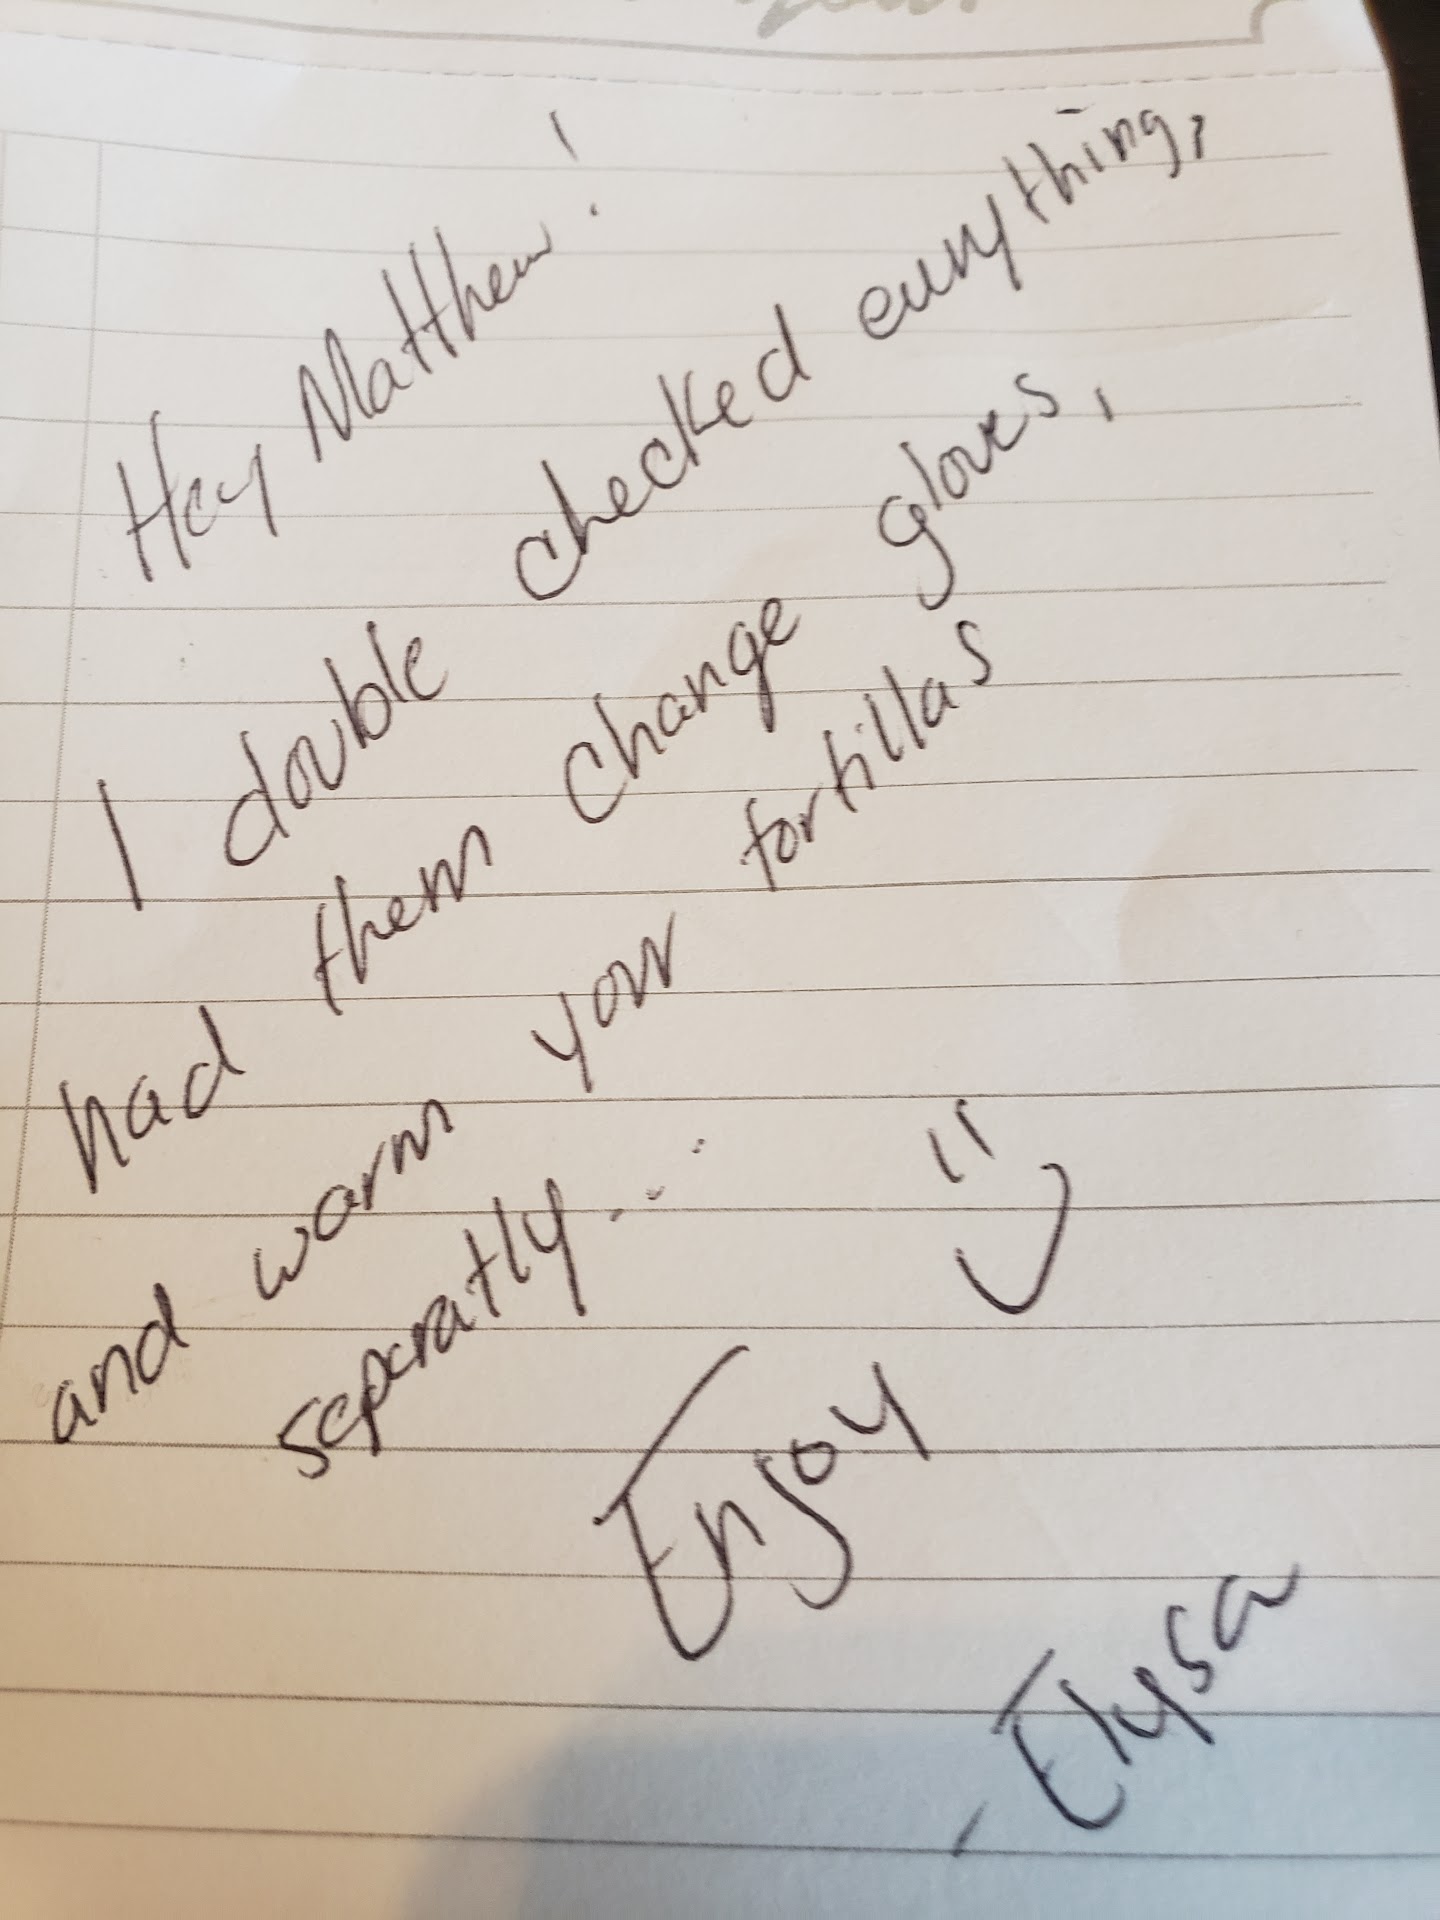 Hey Matthew!
I double checked everything,
had them change gloves,
and warm your tortillas
separatly...
Enjoy
- Elysa